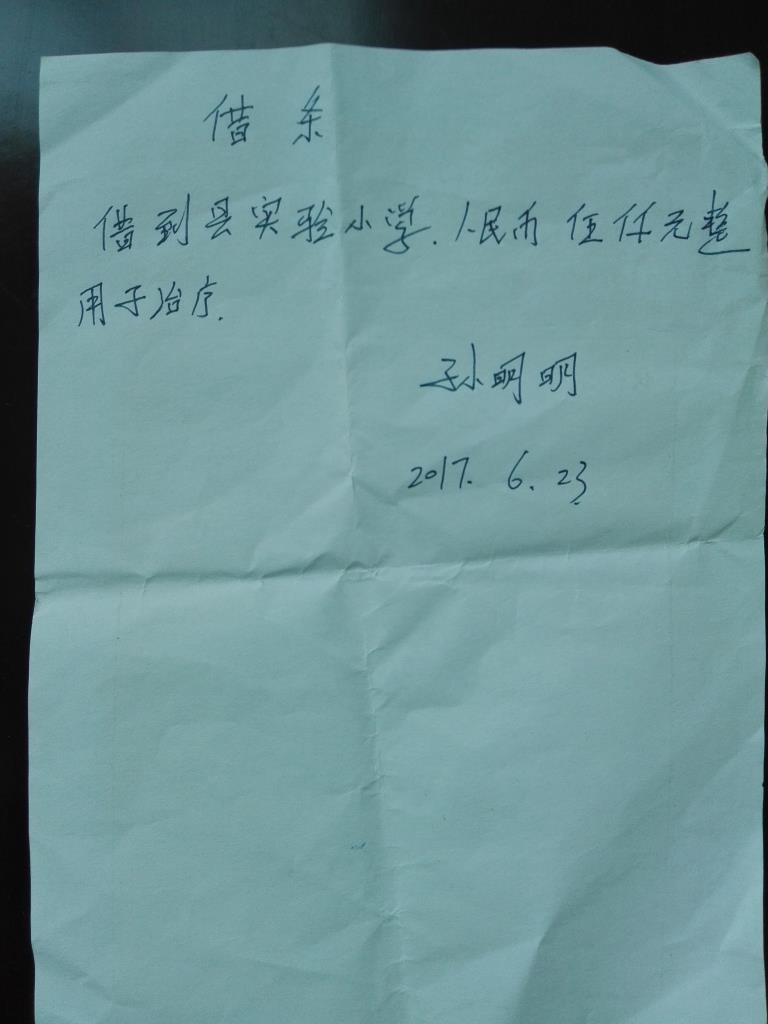 借条
借到县实验小学.人民币伍仟元整
用于治疗.
孙明明
2017.6.23